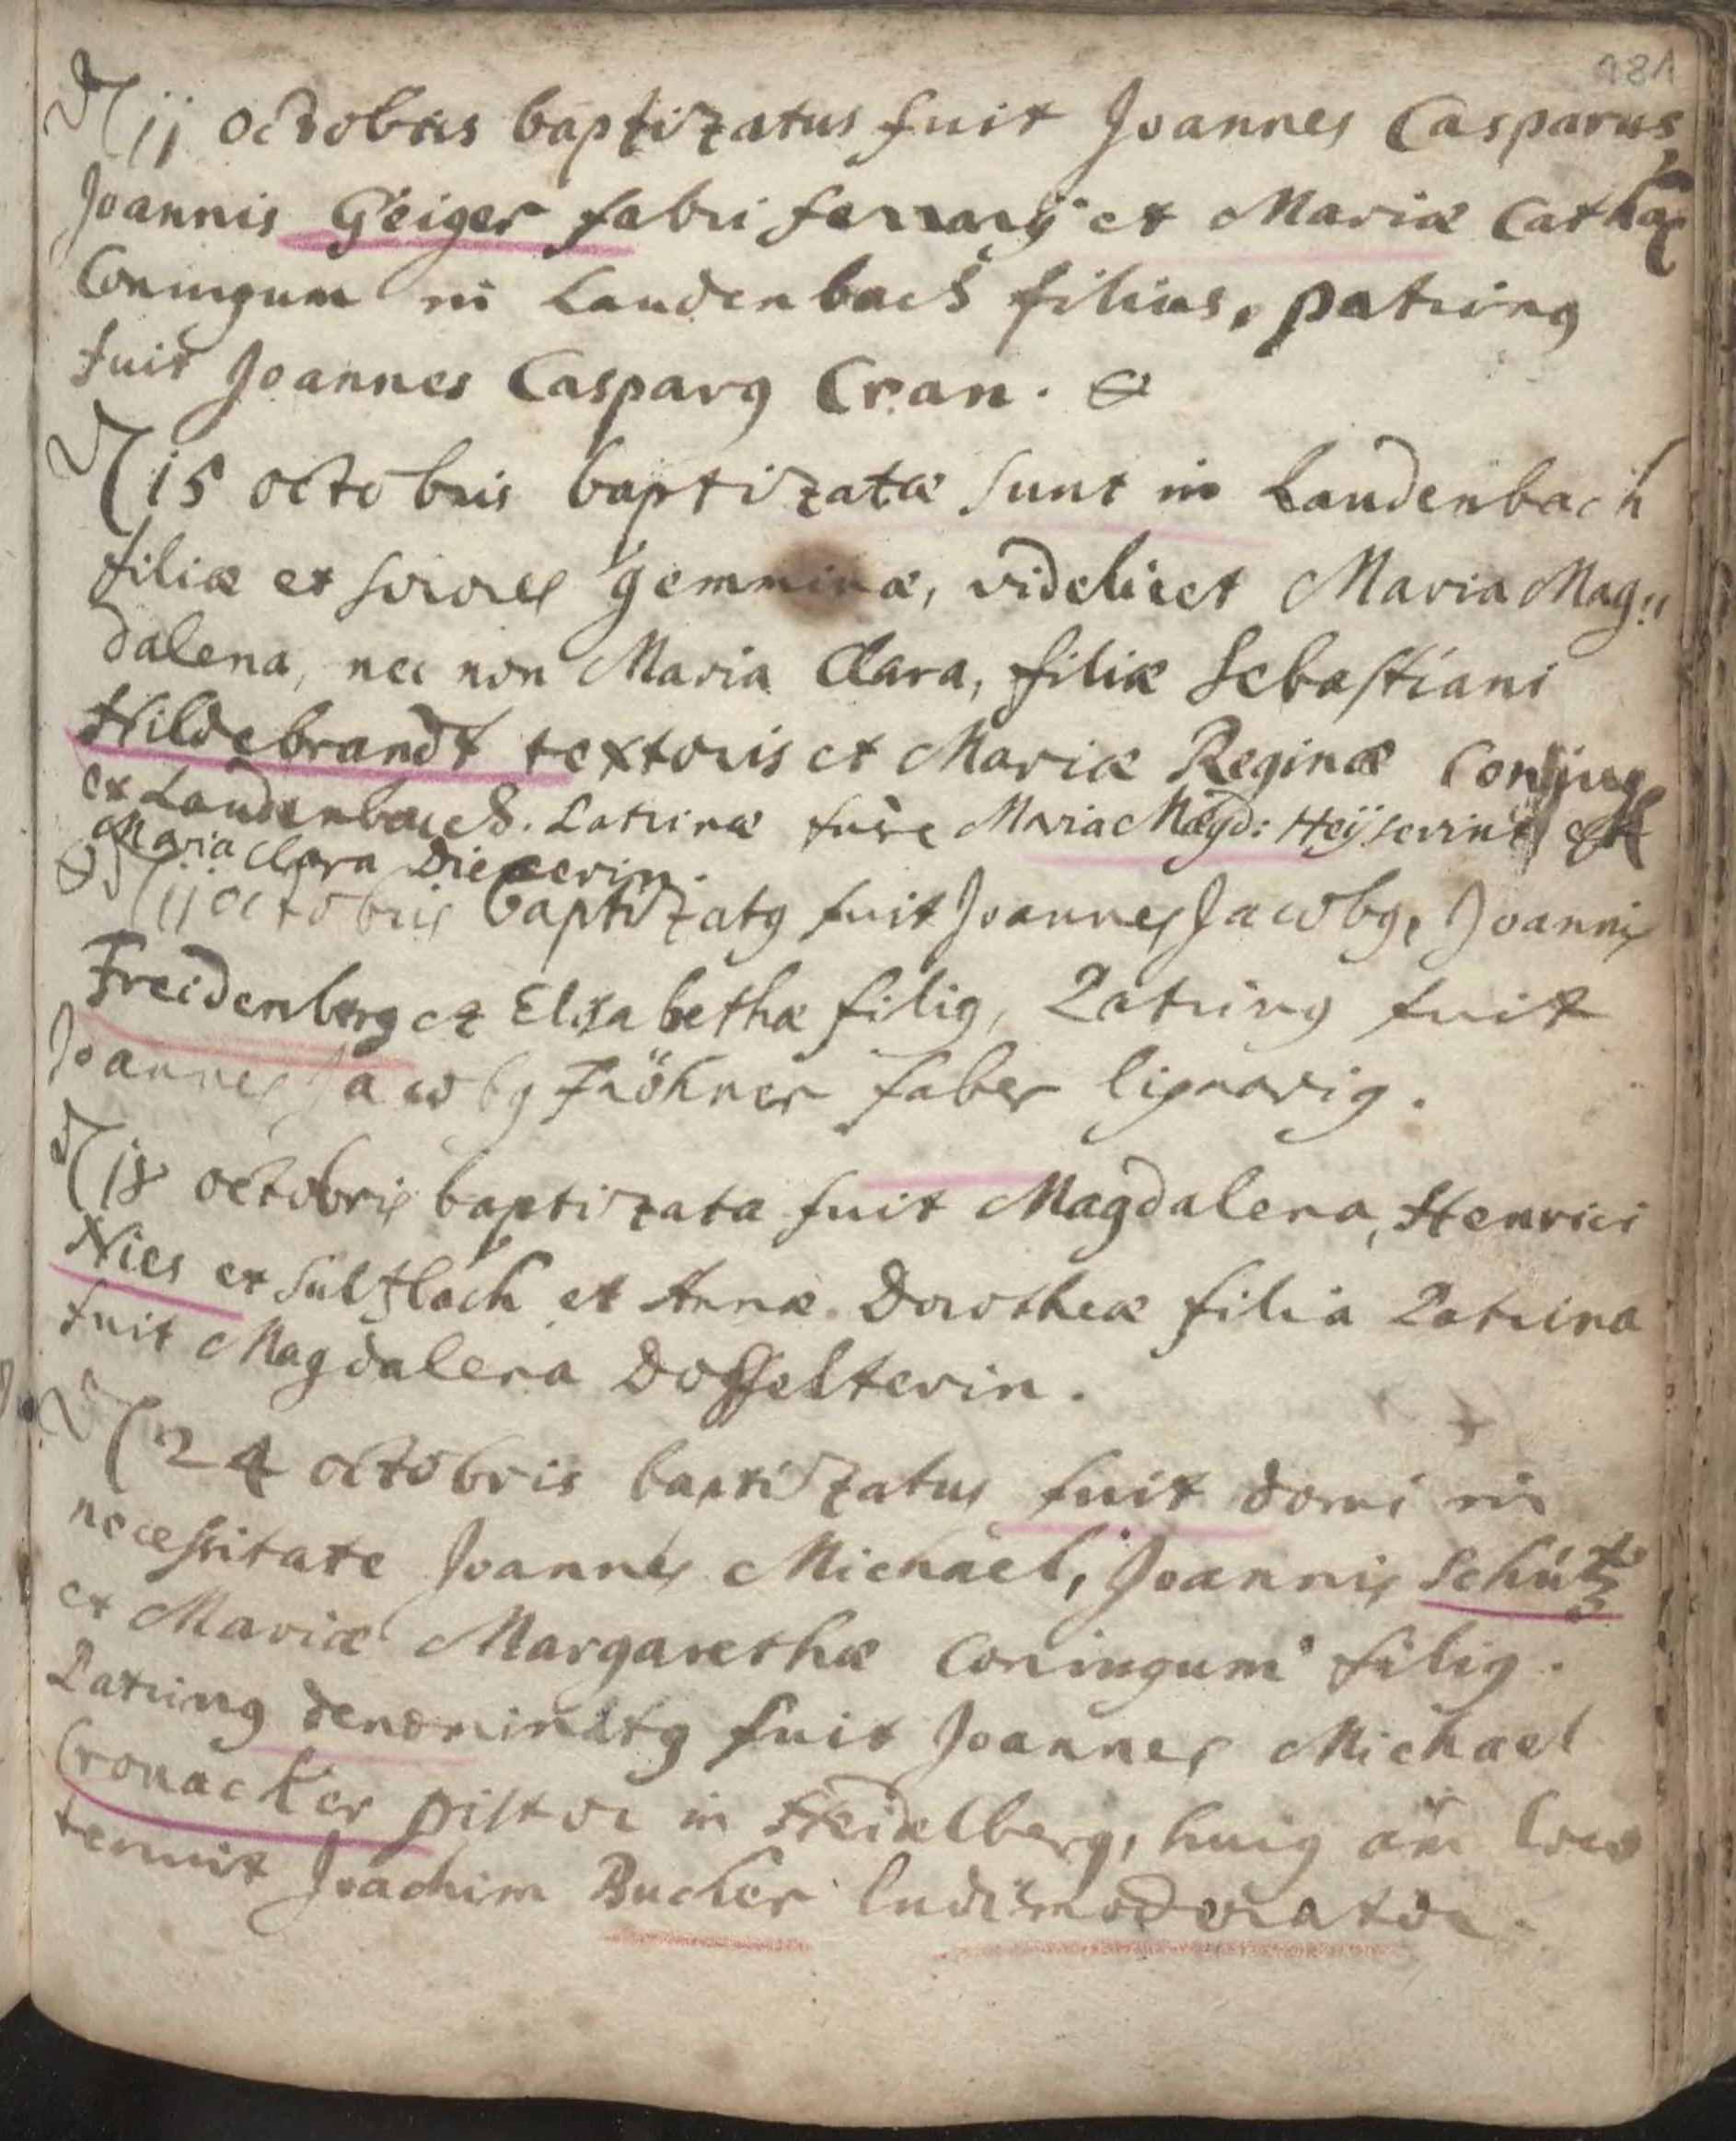 181
11 octobris baptizatus fuit Joannes Casparus,
Joannis Geiger fabri ferrarÿ et Mariæ Cathaæ
Coniugum in Laudenbach filius, patring
fuit Joannes Casparg Cran.
15 octobris baptizatæ sunt in Laudenbach
filiæ et sorores gemminæ, videlicet Maria Mag„
dalena, nec non Maria Clara, filiæ Sebastiani
Hildebrandt textoris et Mariæ Reginæ Coniug
ex Laudenbach. Patrinæ fuêre Maria Magd: Heÿserin et
Maria Clara
11 octobris baptizatg fuit Joannes Jacobg, Joannis
Freidenberg et Elisabethæ filig, Patring fuit
Joannes Jacobg Fröhner faber lignarig.
18 octobris baptizata fuit Magdalena, Henrici
Nies ex Sultzbach et Annæ Dorotheæ filia Patrina
fuit Magdalena Dosselterin.
24 octobris baptizatus fuit domi in
necessitate Joannes Michael, Joannis Schütz
et Mariæ Margarethæ Coniugum filig.
Patring denominatg fuit Joannes Michael
Cronacker pistor in Heidelberg, huig aũ loco
tenuit Joachim Bucher ludimoderator.